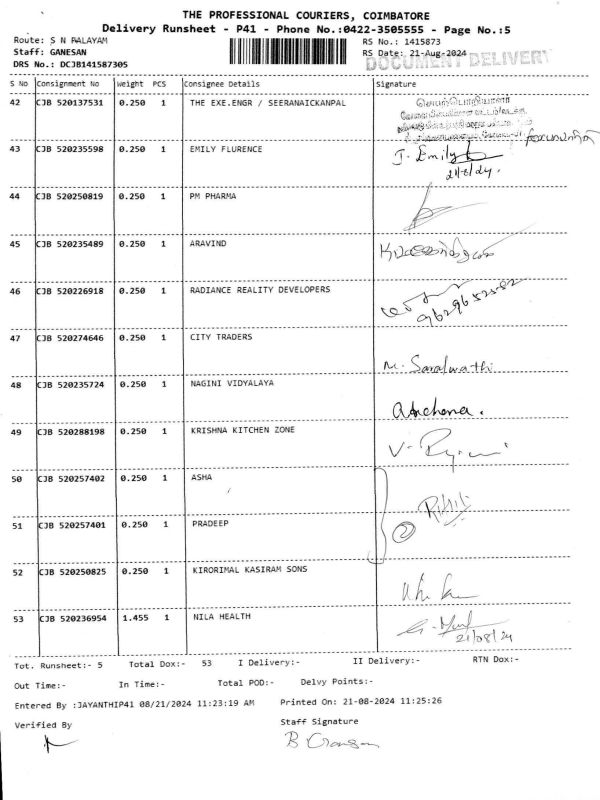 THE PROFESSIONAL COURIERS, COIMBATORE
Delivery Runsheet - P41 - Phone No.:0422-3505555 - Page No.:5
Route: S N PALAYAM
RS No.: 1415873
Staff: GANESAN
RS Date: 21-Aug-2024
DOCUMENT DELIVERY
DRS No.: DCJB141587305
S No Consignment No Weight PCS Consignee Details Signature
42 CJB 520137531 0.250 1 THE EXE.ENGR / SEERANAICKANPAL
43 CJB 520235598 0.250 1 EMILY FLURENCE J. Emily
21/8/24.
44 CJB 520250819 0.250 1 PM PHARMA
45 CJB 520235489 0.250 1 ARAVIND
46 CJB 520226918 0.250 1 RADIANCE REALITY DEVELOPERS
47 CJB 520274646 0.250 1 CITY TRADERS
M. Saralwathi
48 CJB 520235724 0.250 1 NAGINI VIDYALAYA
49 CJB 520288198 0.250 1 KRISHNA KITCHEN ZONE
50 CJB 520257402 0.250 1 ASHA
51 CJB 520257401 0.250 1 PRADEEP 2
52 CJB 520250825 0.250 1 KIRORIMAL KASIRAM SONS
53 CJB 520236954 1.455 1 NILA HEALTH
21/08/24
Tot. Runsheet:- 5 Total Dox:- 53 I Delivery:- II Delivery:- RTN Dox:-
Out Time:- In Time:- Total POD:- Delvy Points:-
Entered By :JAYANTHIP41 08/21/2024 11:23:19 AM Printed On: 21-08-2024 11:25:26
Verified By Staff Signature